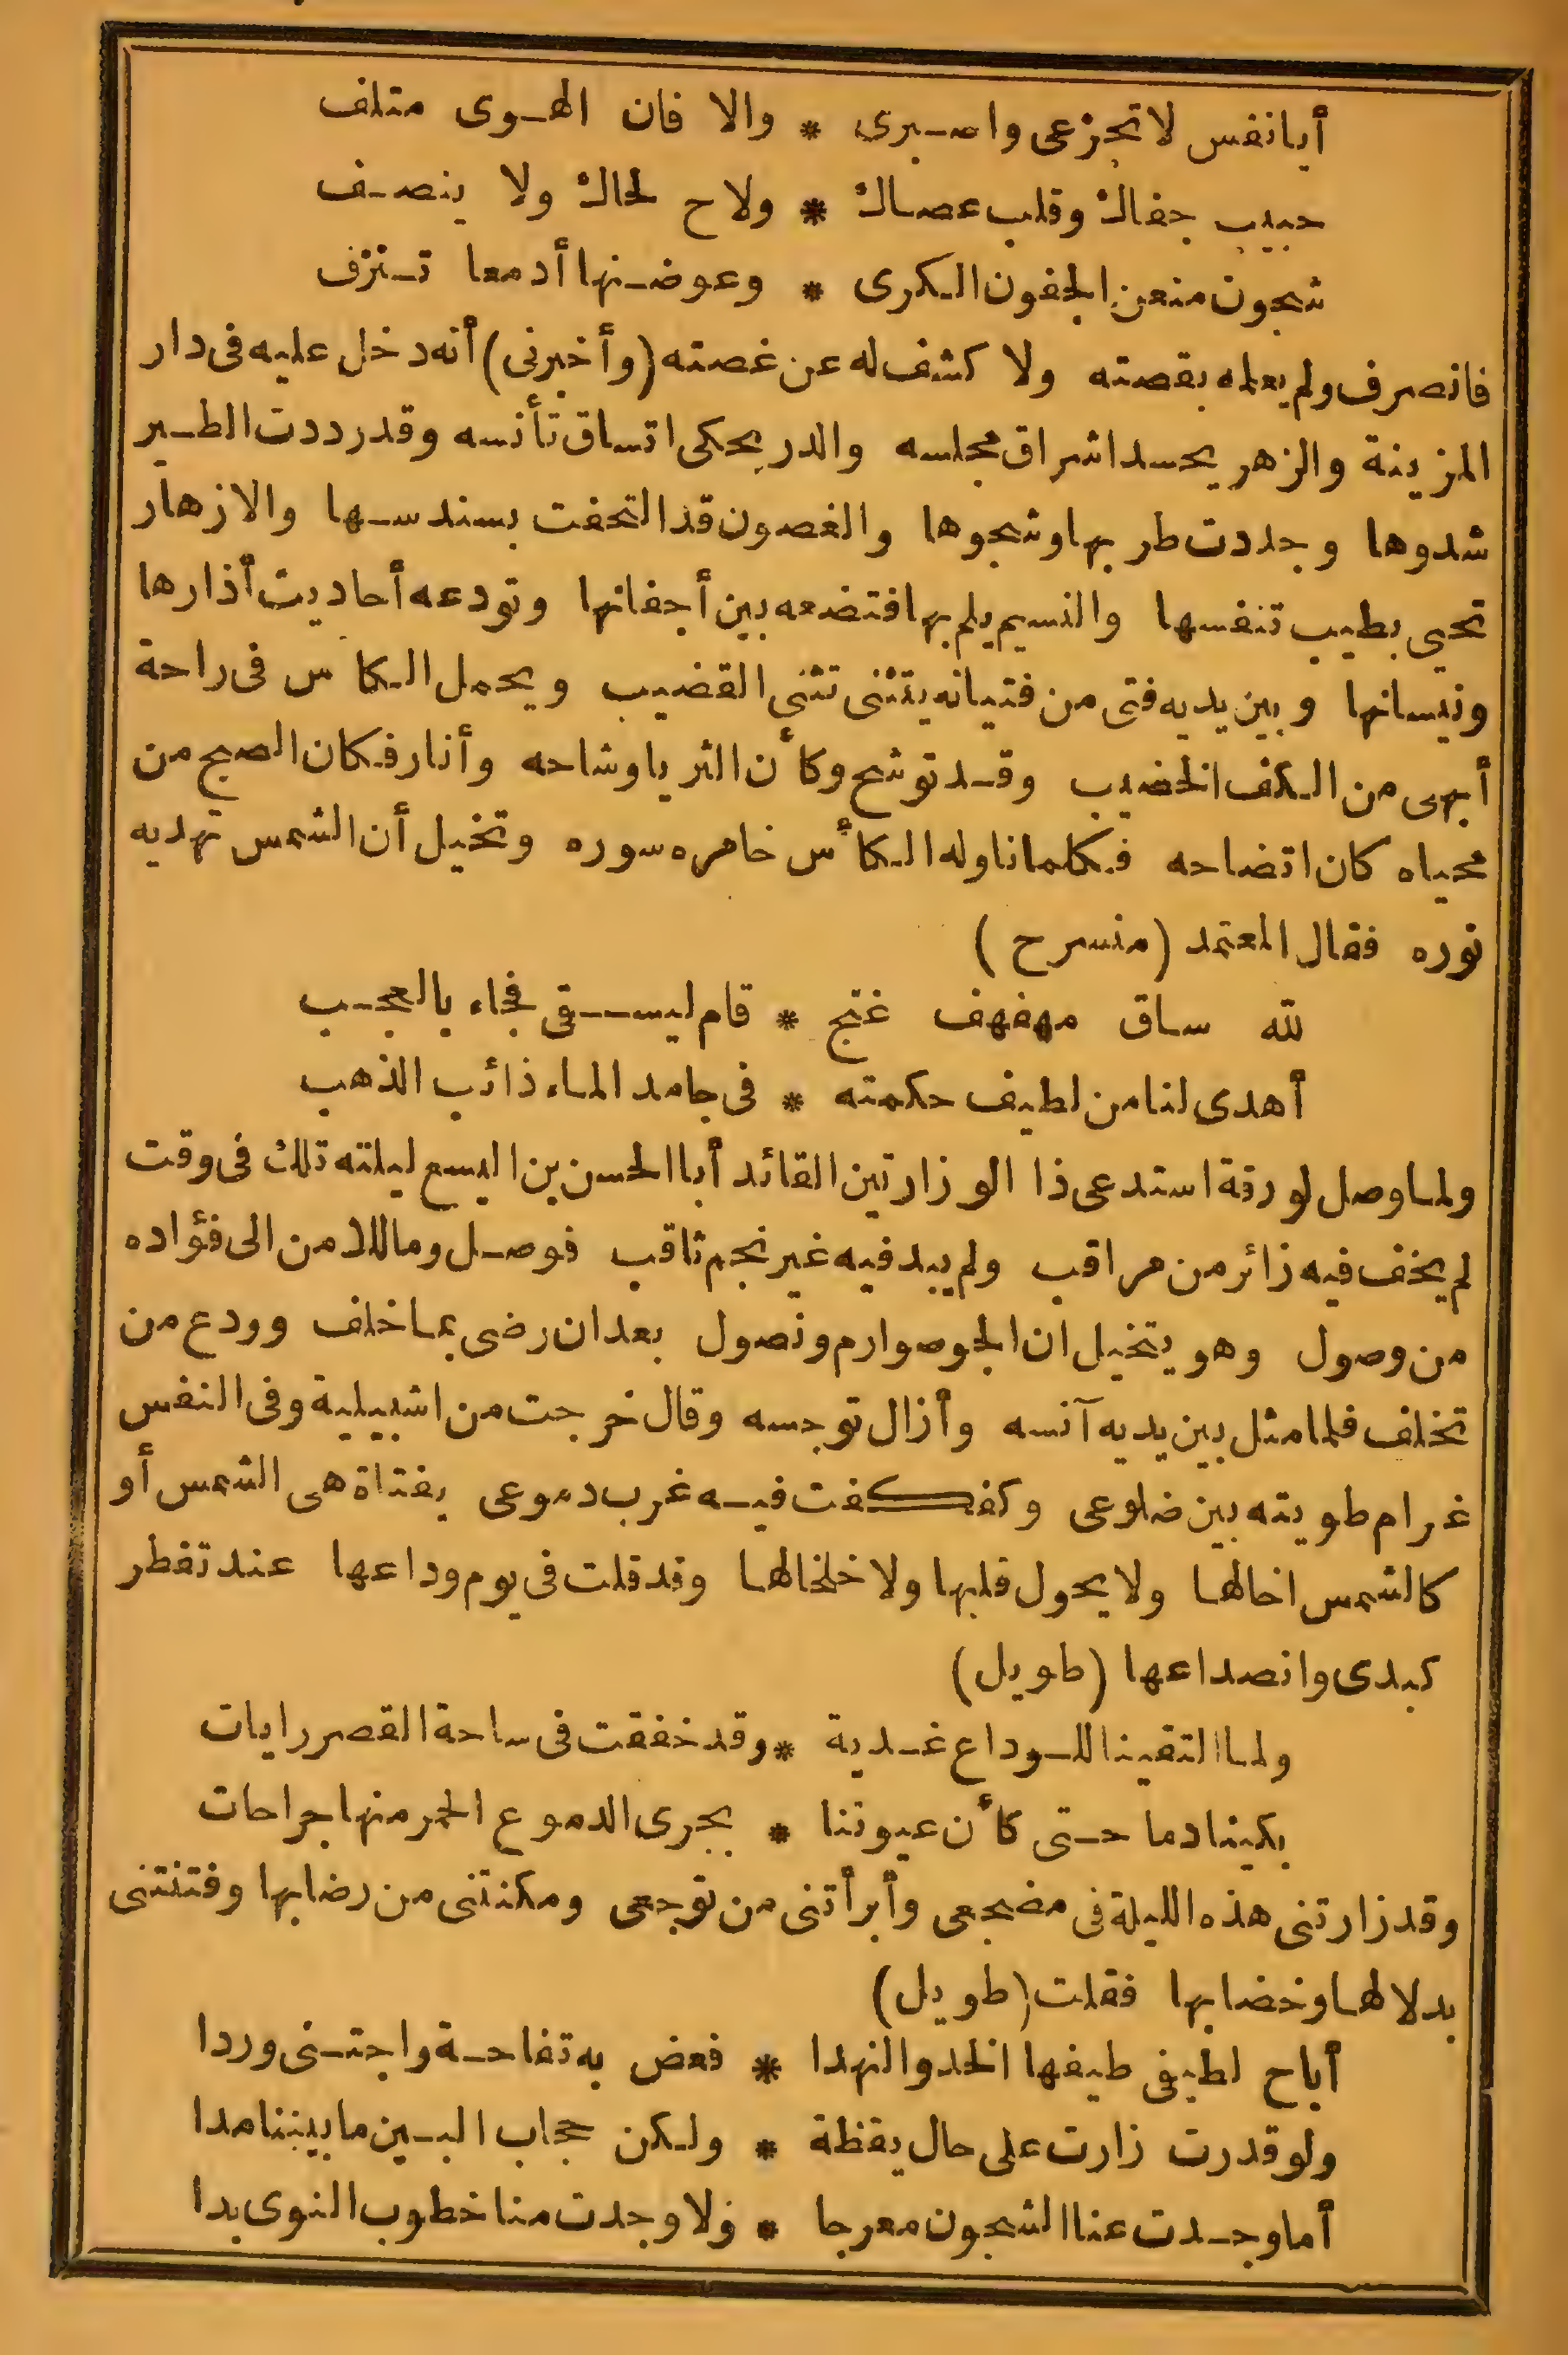 أيانفس لاتجزعى واصبرى * والا فان الهوى متلف
حبيب جفاك وقلب عصاك * ولاح لحاك ولا ينصف
شجون منعن الجفون الكرى * وعوضنها أدمعا تنزف
فانصرف ولم يعلمه بقصته ولا كشف له عن غصته (وأخبرنى) أنه دخل عليه فى دار
المزينة والزهر يحسد اشراق مجلسه والدر يحكى اتساق تأنسه وقد رددت الطير
شدوها وجددت طربها وشجوها والغصون قد التحفت بسندسها والازهار
تحيى بطيب تنفسها والنسيم يلم بها فتضعه بين أجفانها وتودعه أحاديث أذارها
ونيسانها وبين يديه فتى من فتيانه يتثنى تثنى القضيب ويحمل الكاس فى راحة
أبهى من الكف الخضيب وقد توشح وكأن الثريا وشاحه وأنار فكان الصبح من
محياه كان اتضاحه فكلما ناوله الكأس خامره سوره وتخيل أن الشمس تهديه
نوره فقال المعتمد (منسرح)
لله ساق مهفهف غنج * قام ليسقى فجاء بالعجب
أهدى لنا من لطيف حكمته * فى جامد الماء ذائب الذهب
ولما وصل لورقة استدعى ذا الوزارتين القائد أبا الحسن بن اليسع ليلته تلك فى وقت
لم يخف فيه زائر من مراقب ولم يبد فيه غير نجم ثاقب فوصل وما للامن الى فؤاده
من وصول وهو يتخيل ان الجو صوارم ونصول بعد ان رضى بما خلف وودع من
تخلف فلما مثل بين يديه آنسه وأزال توجسه وقال خرجت من اشبيلية وفى النفس
غرام طويته بين ضلوعى وكفكفت فيه غرب دموعى بفتاة هى الشمس أو
كالشمس اخالها ولا يحول قلبها ولا خلخالها وقد قلت فى يوم وداعها عند تفطر
كبدى وانصداعها (طويل)
ولما التقينا للوداع غدية * وقد خفقت فى ساحة القصر رايات
بكينا دما حتى كأن عيوننا * بجرى الدموع الحمر منها جراحات
وقد زارتنى هذه الليلة فى مضجعى وأبرأتنى من توجعى ومكنتنى من رضابها وفتنتنى
بدلالها وخضابها فقلت (طويل)
أباح لطيفى طيفها الخد والنهدا * فعض به تفاحة واجتنى وردا
ولو قدرت زارت على حال يقظة * ولكن حجاب البين ما بيننا مدا
أما وجدت عنا الشجون معرجا * ولا وجدت منا خطوب النوى بدا